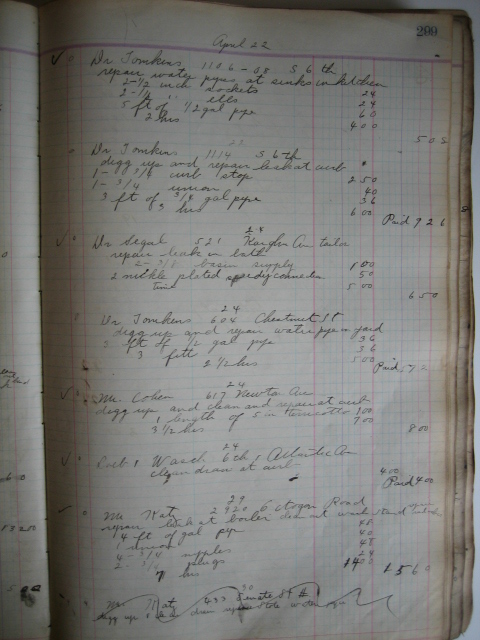 299
April 22
Dr. Tomkens 1106-08 S 6th
repair water pipes at sinks in kitchen
2-1/2 inch sockets 24
2-1/2 " ells 24
5 ft of 1/2 gal pipe 60
2 hrs 400
508
Dr Tomkins 1114 S 6th
digg up and repair leak at curb
1-3/4 curb stop 250
1-3/4 union 40
3 ft of 3/4 gal pipe 36
3 hrs 600
Paid 926
24
Dr Segal 521 Kaighn Av tailor
repair leak in bath
2-3/8 basin supply 100
2 nickle plated speedy connection 50
time 500
650
24
Dr. Tomkins 604 Chestnut St
digg up and repair water pipe in yard
3 ft of 1/2 gal pipe 36
3 fitt 36
2 1/2 hrs 500
Paid
24
Mr. Cohen 617 Newton Av
digg up and clean and repair at curb
1 length of 5 in terracotta 100
3 1/2 hrs 700
800
24
Robt Wasch 6th & Atlantic Av
clean drain at curb 400
Paid 400
29
Mr Katz 2920 Octagon Road
repair leak at boiler
4 ft of gal pipe 48
1 union 40
4-3/4 nipples 48
2-3/4 plugs 24
7 hrs 1400
1560
30
Mr. Katz 433 Senate St
digg up